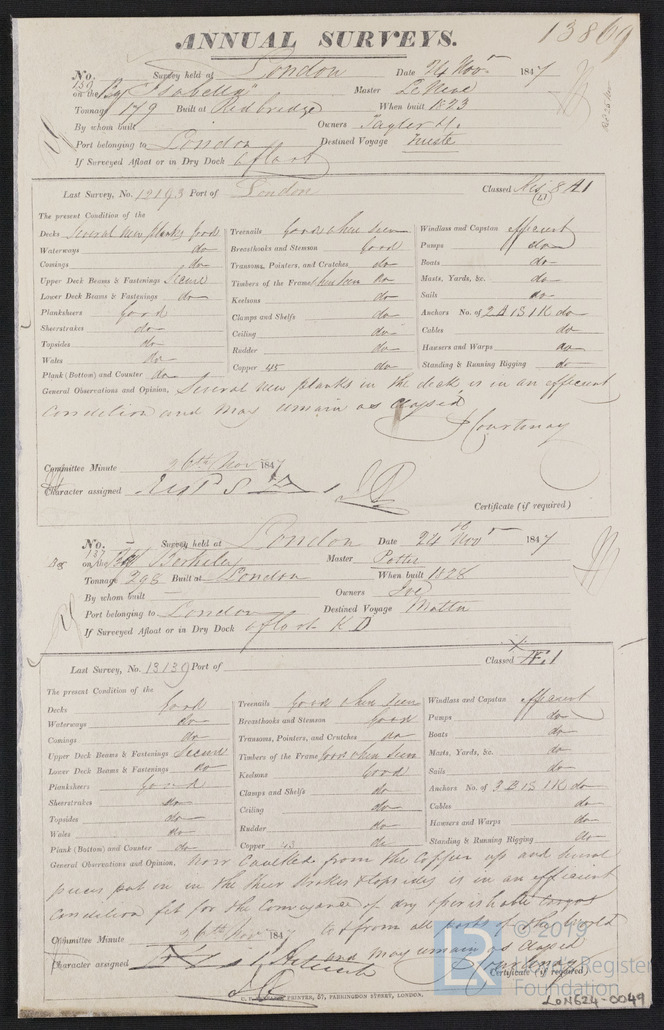 13869
ANNUAL SURVEYS.
No. 159 Survey held at London Date 24 Novr 1847
on the Bg "Isabella" Master LeNeve
Tonnage 179 Built at Redbridge When built 1823
By whom built Owners Tayler
Port belonging to London Destined Voyage
If Surveyed Afloat or in Dry Dock afloat
Last Survey, No. 12193 Port of London Classed 8 A1
The present Condition of the
Decks Several New planks good
Waterways do
Comings do
Upper Deck Beams & Fastenings Secure
Lower Deck Beams & Fastenings do
Planksheers good
Sheerstrakes do
Topsides do
Wales do
Plank (Bottom) and Counter do
Treenails good when seen
Breasthooks and Stemson good
Transoms, Pointers, and Crutches do
Timbers of the Frame when seen do
Keelsons do
Clamps and Shelfs do
Ceiling do
Rudder do
Copper 45 do
Windlass and Capstan efficient
Pumps do
Boats do
Masts, Yards, &c. do
Sails do
Anchors No. of 2 B 1 S 1 K do
Cables do
Hawsers and Warps do
Standing & Running Rigging do
General Observations and Opinion, Several new planks in the deck is in an efficient
condition and may remain as classed
Courtenay
Committee Minute 26th Nov 1847
Character assigned
Certificate (if required)
No. 137 Survey held at London Date 24 Novr 1847
on the Berkeley Master Pottie
Tonnage 298 Built at London When built 1828
By whom built Owners
Port belonging to London Destined Voyage Malta
If Surveyed Afloat or in Dry Dock afloat K D
Last Survey, No. 13139 Port of Classed Æ1
The present Condition of the
Decks good
Waterways do
Comings do
Upper Deck Beams & Fastenings Secure
Lower Deck Beams & Fastenings do
Planksheers good
Sheerstrakes do
Topsides do
Wales do
Plank (Bottom) and Counter do
Treenails good when seen
Breasthooks and Stemson good
Transoms, Pointers, and Crutches do
Timbers of the Frame good when seen
Keelsons good
Clamps and Shelfs do
Ceiling do
Rudder do
Copper 43 do
Windlass and Capstan efficient
Pumps do
Boats do
Masts, Yards, &c. do
Sails do
Anchors No. of 3 B 1 S 1 K do
Cables do
Hawsers and Warps do
Standing & Running Rigging do
General Observations and Opinion, now caulked from the copper up and several
pieces put in in the sheer strakes & topsides is in an efficient
condition fit for the conveyance of dry & perishable cargos
to & from all parts of the world
Committee Minute 26th Nov 1847
and may remain as classed
Character assigned
Courtenay
Certificate (if required)
PRINTER, 57, FARRINGDON STREET, LONDON.
© 2019
Lloyd's Register
Foundation
LON624-0049